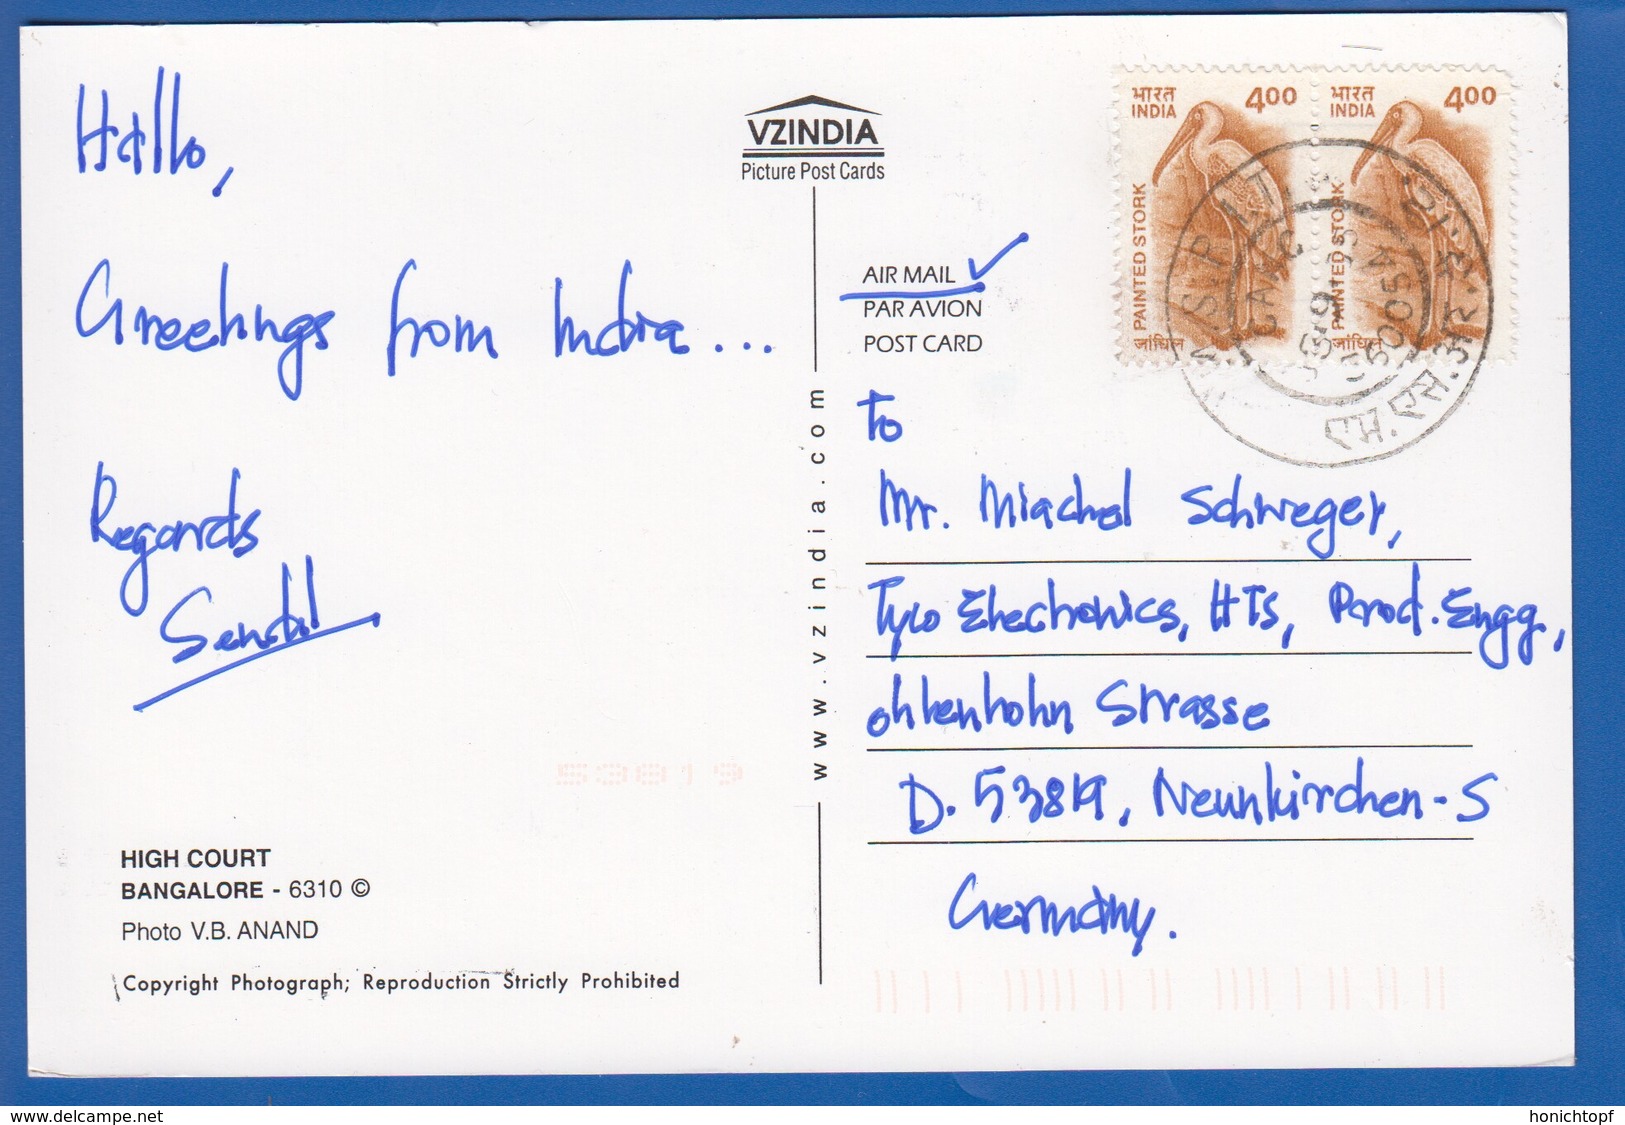 Hallo,
Greetings from India...
Regards
Sendil
HIGH COURT
BANGALORE - 6310 ©
Photo V.B. ANAND
Copyright Photograph; Reproduction Strictly Prohibited
VZINDIA
Picture Post Cards
www.vzindia.com
53819
AIR MAIL
PAR AVION
POST CARD
भारत
INDIA
400
PAINTED STORK
जांघिल
भारत
INDIA
400
PAINTED STORK
जांघिल
560054
एम.एस.आर.
To
Mr. Miachel Schweger,
Tyco Electronics, HTS, Prod. Engg,
ohlenhohn Strasse
D. 53819, Neunkirchen-S
Germany.
delcampe.net
honichtopf